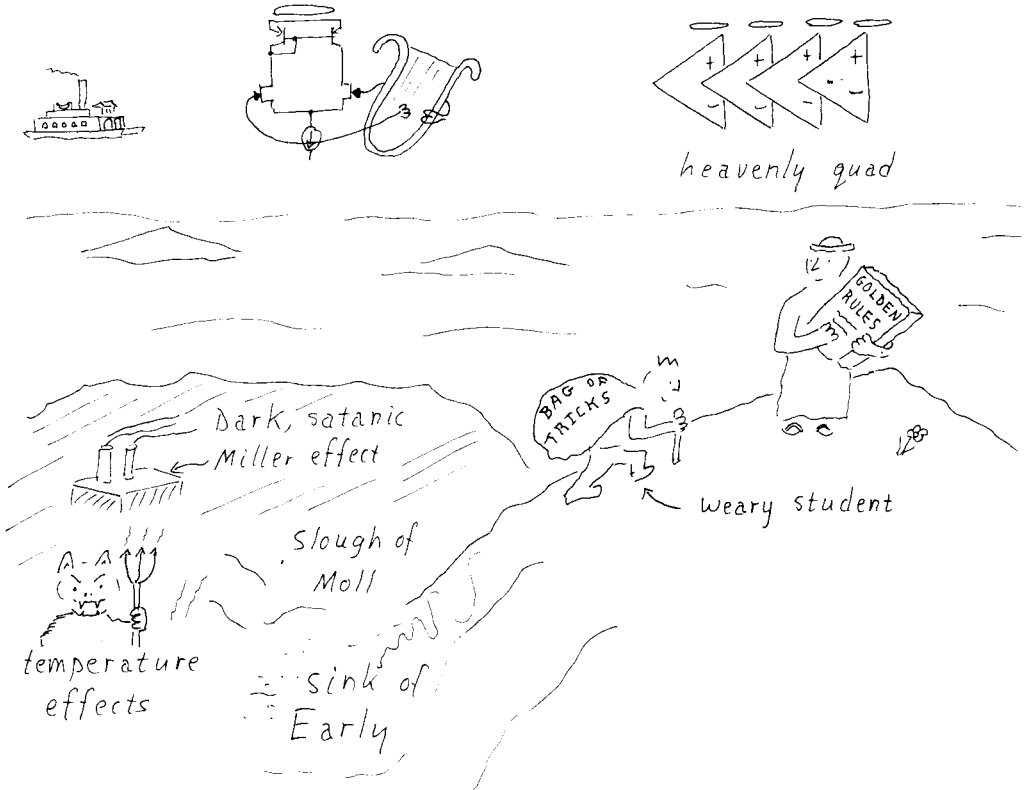 + + + +
- - - -
heavenly quad
GOLDEN
RULES
BAG OF
TRICKS
Dark, satanic
Miller effect
weary student
Slough of
Moll
temperature
effects
sink of
Early